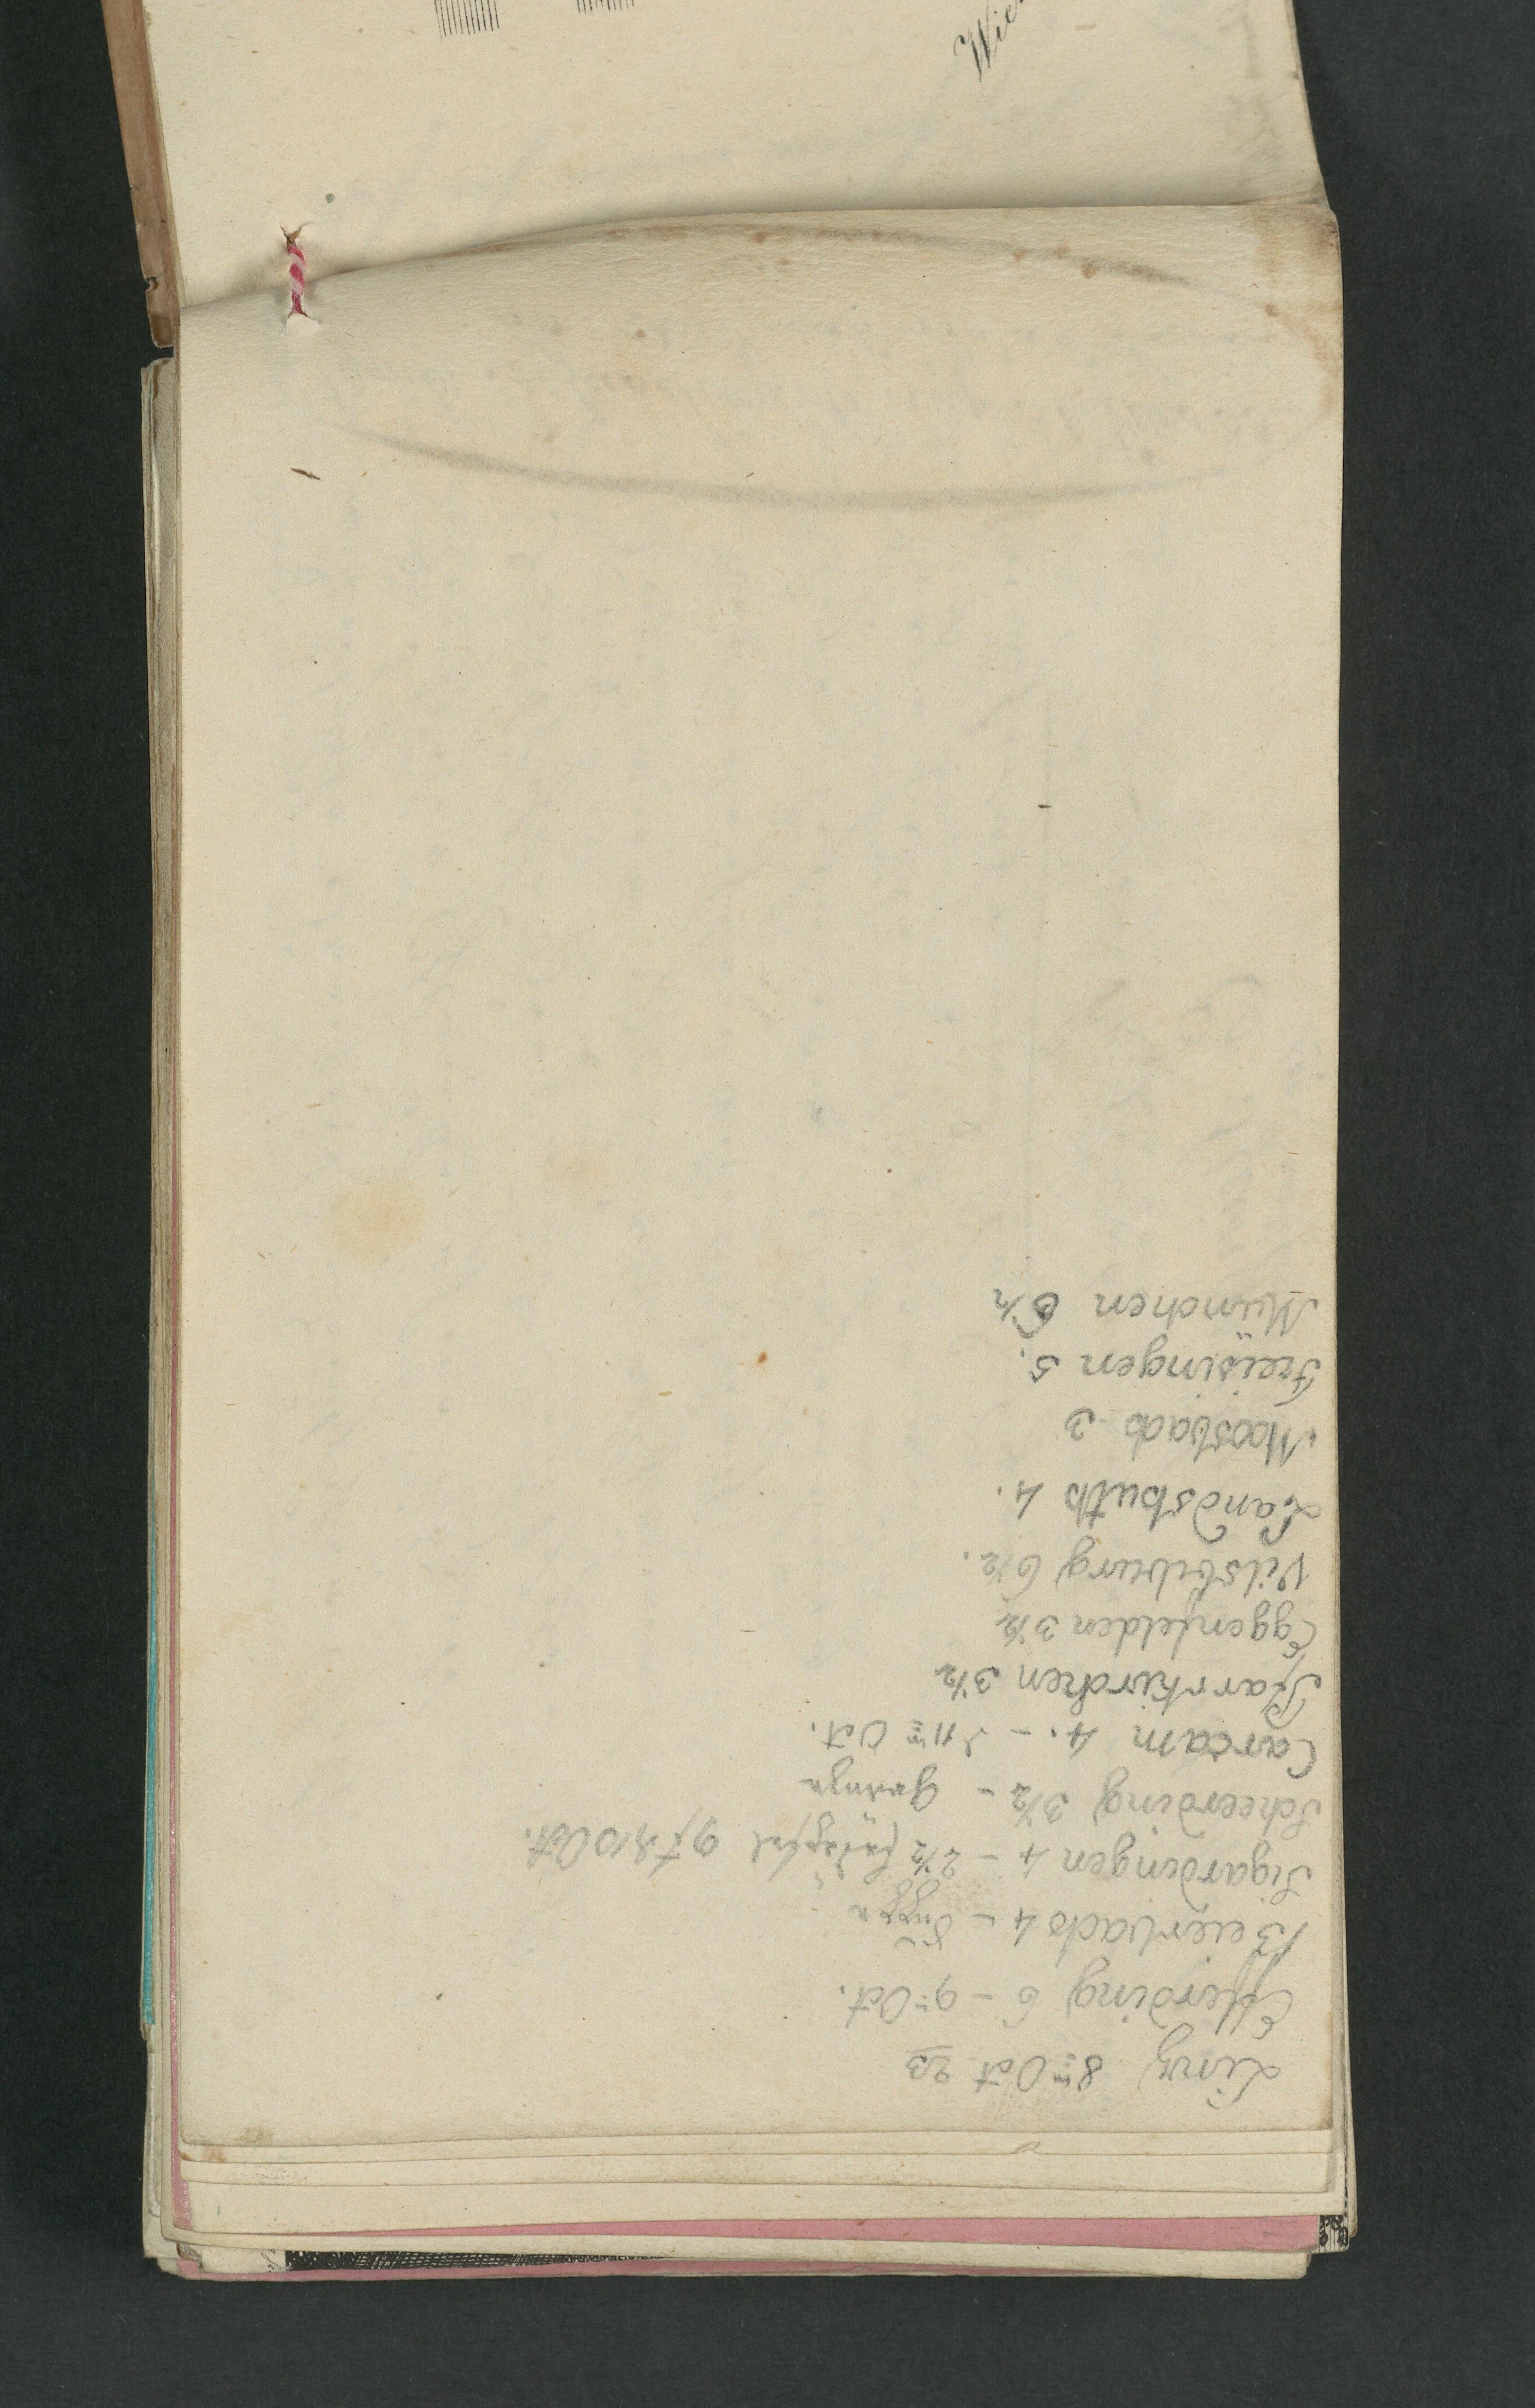 Linz 8ten Oct 23
Efferding 6 – 9ten Oct.
Beierbach 4 –
Sigardingen 4 – 2½ 9t & 10 Oct.
Scheerding 3½ –
Carcam 4. – d 11ten Oct.
Pfarrkirchen 3½
Eggenfelden 3½
Vilsbiburg 6½.
Landshuth 4.
Moosbach 3
Freisingen 5.
München 6½